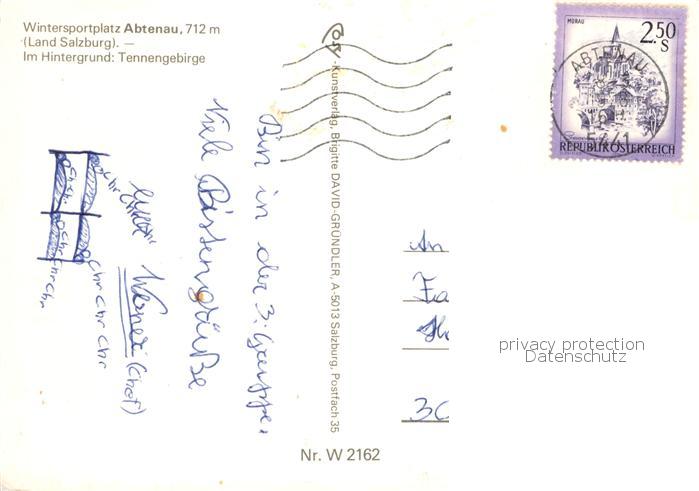 Wintersportplatz Abtenau, 712 m
(Land Salzburg). —
Im Hintergrund: Tennengebirge
Cosy-Kunstverlag, Brigitte DAVID-GRÜNDLER, A-5013 Salzburg, Postfach 35
Nr. W 2162
MURAU
2.50
S
REPUBLIK ÖSTERREICH
ABTENAU
Bin in der 3. Gruppe.
Viele Pistengrüße
euer Werner (Chef)
chr chr chr
An
30
privacy protection
Datenschutz